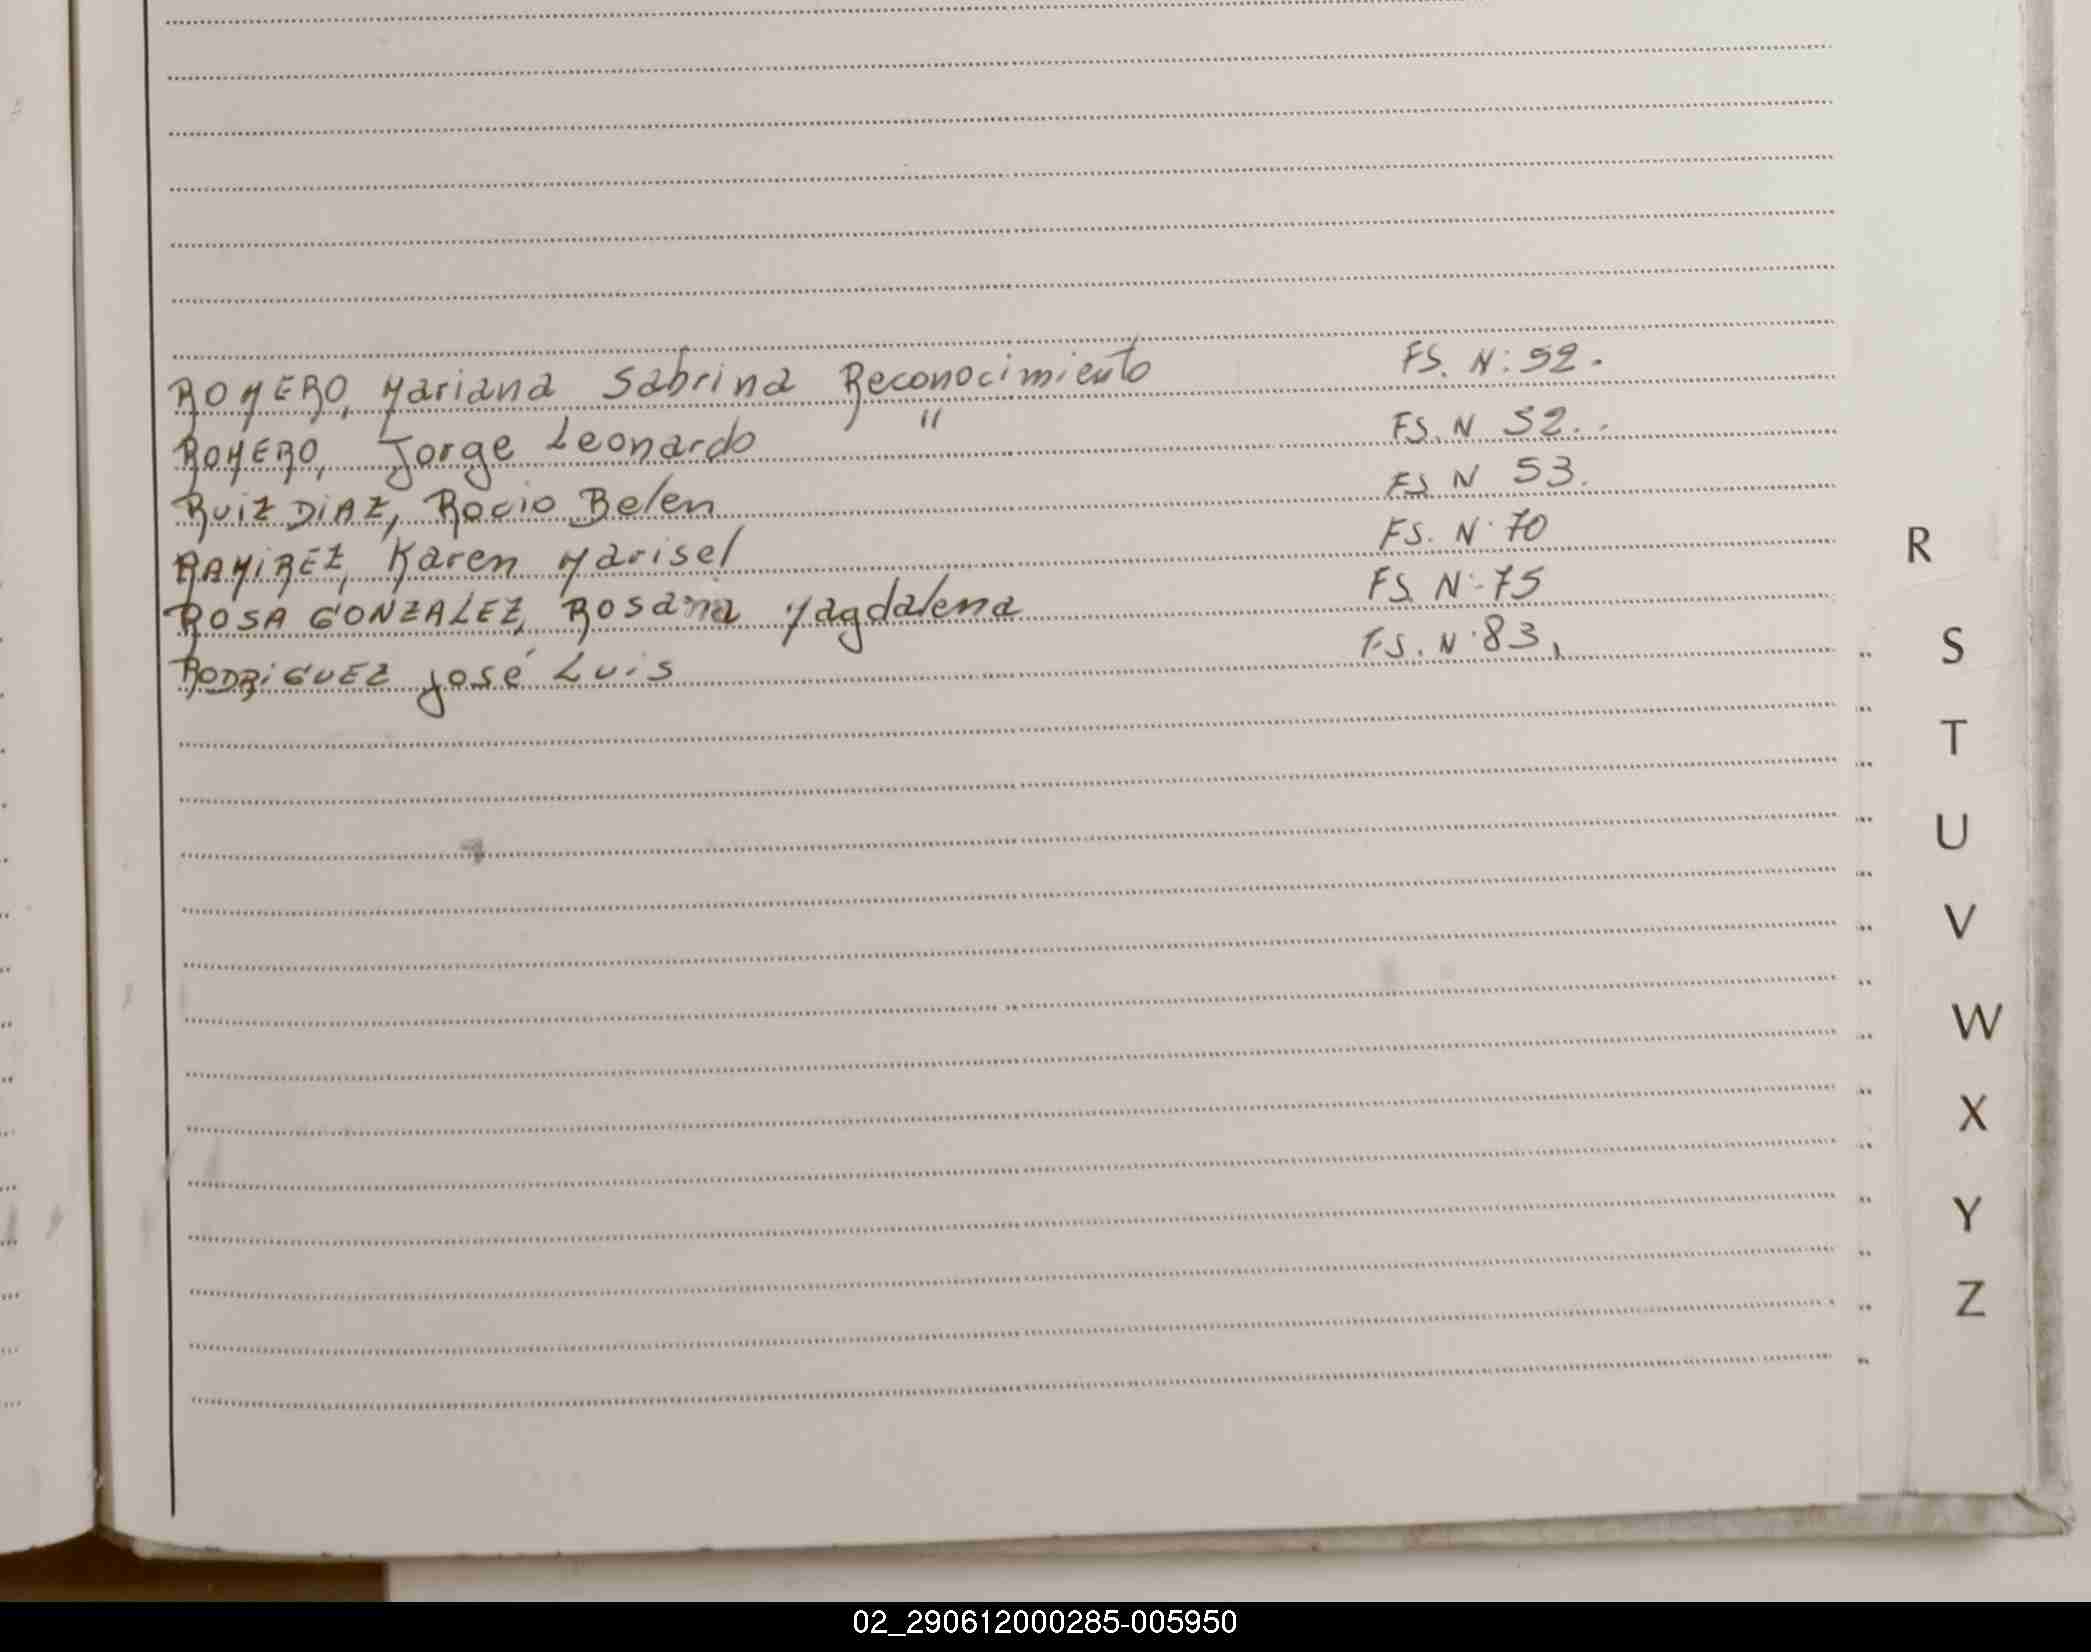 ROMERO, Mariana Sabrina Reconocimiento FS. N: 52.
ROMERO, Jorge Leonardo " FS. N 52..
RUIZ DIAZ, Rocio Belen FS N 53.
RAMIREZ, Karen Marisel FS. N: 70
ROSA GONZALEZ, Rosana Magdalena FS. N: 75
RODRIGUEZ José Luis FS. N: 83,
R
S
T
U
V
W
X
Y
Z
02_290612000285-005950